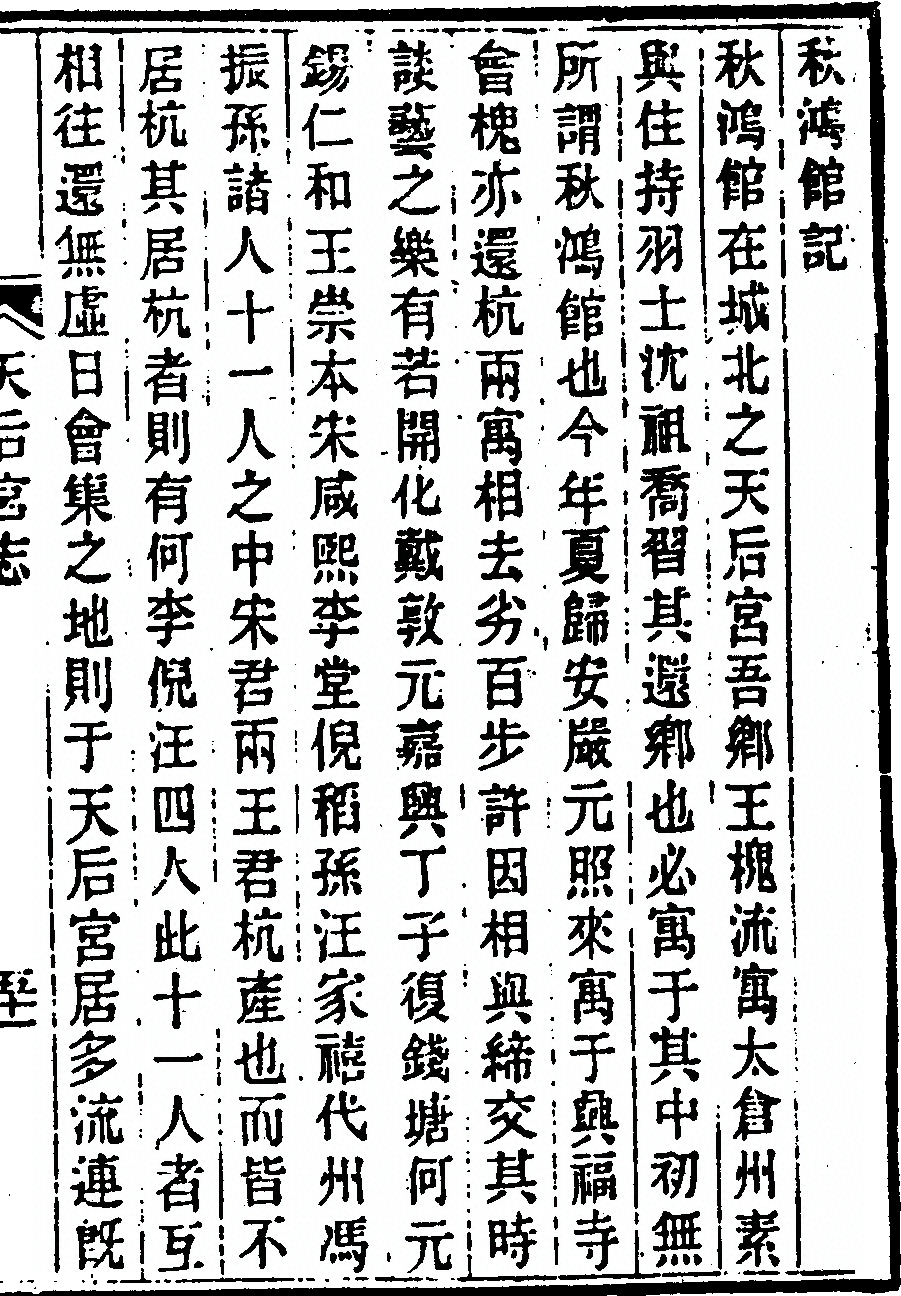 秋鴻館記
秋鴻館在城北之天后宮吾鄉王槐流寓太倉州素
與住持羽士沈祖喬習其還鄉也必寓于其中初無
所謂秋鴻館也今年夏歸安嚴元照來寓于興福寺
會槐亦還杭兩寓相去劣百步許因相與締交其時
談藝之樂有若開化戴敦元嘉興丁子復錢塘何元
錫仁和王崇本朱咸熙李堂倪稻孫汪家禧代州馮
振孫諸人十一人之中朱君兩王君杭產也而皆不
居杭其居杭者則有何李倪汪四人此十一人者互
相往還無虛日會集之地則于天后宮居多流連既
天后宮志